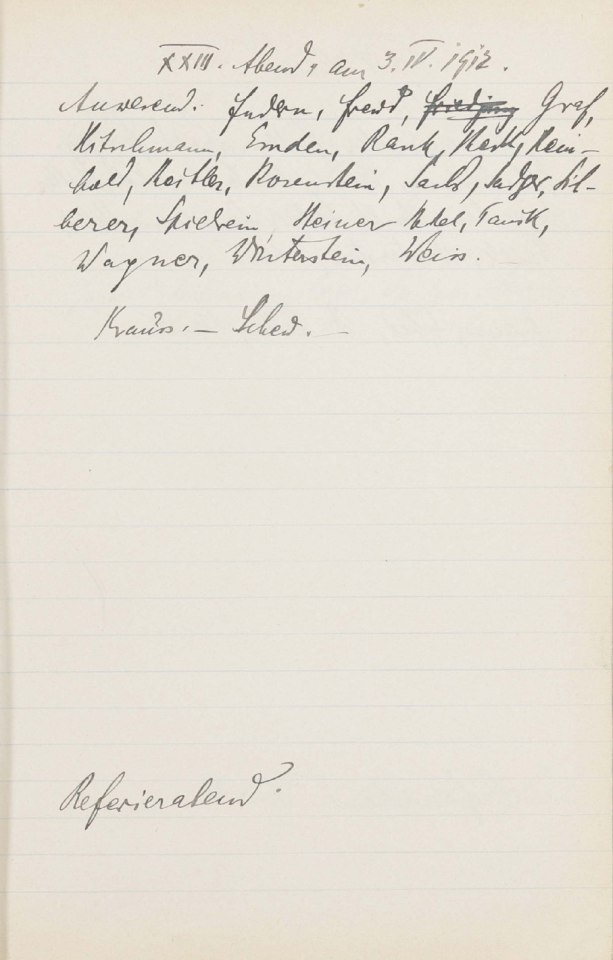 XXIII. Abend, am 3. IV. 1912.
Anwesend: Federn, Freud, Friedjung Graf,
Hitschmann, Emden, Rank, Reik, Rein-
hold, Reitler, Rosenstein, Sachs, Sadger, Sil-
berer, Spielrein, Steiner Stekel, Tausk,
Wagner, Winterstein, Weiss.
Krauss. —
Referierabend.